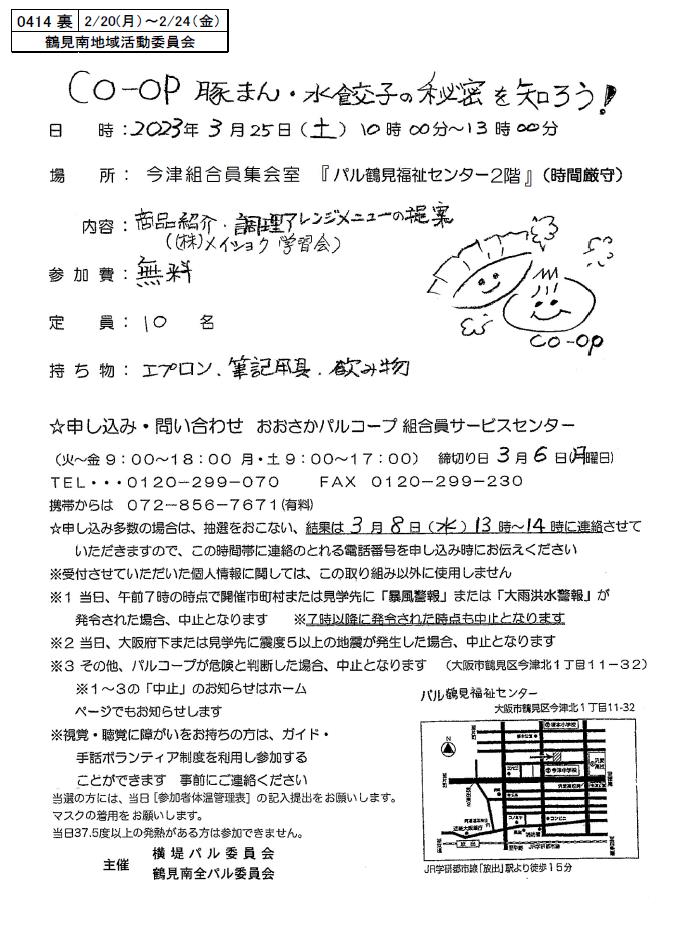 0414 裏 2/20(月)～2/24(金)
鶴見南地域活動委員会
CO-OP 豚まん・水餃子の秘密を知ろう!
日　時：2023年 3月25日(土) 10時00分～13時00分
場　所： 今津組合員集会室 『パル鶴見福祉センター2階』(時間厳守)
内容：商品紹介・調理アレンジメニューの提案
((株)メイショク学習会)
参加費：無料
定　員：10 名
co-op
持ち物：エプロン、筆記用具、飲み物
☆申し込み・問い合わせ おおさかパルコープ 組合員サービスセンター
(火～金 9：00～18：00 月・土 9：00～17：00) 締切り日 3月 6 日(月曜日)
TEL・・・0120－299－070 FAX 0120－299－230
携帯からは 072－856－7671(有料)
☆申し込み多数の場合は、抽選をおこない、結果は 3月 8日(水) 13時～14時に連絡させて
いただきますので、この時間帯に連絡のとれる電話番号を申し込み時にお伝えください
※受付させていただいた個人情報に関しては、この取り組み以外に使用しません
※1 当日、午前7時の時点で開催市町村または見学先に「暴風警報」または「大雨洪水警報」が
発令された場合、中止となります ※7時以降に発令された時点も中止となります
※2 当日、大阪府下または見学先に震度5以上の地震が発生した場合、中止となります
※3 その他、パルコープが危険と判断した場合、中止となります (大阪市鶴見区今津北1丁目11－32)
※1～3の「中止」のお知らせはホーム
ページでもお知らせします
※視覚・聴覚に障がいをお持ちの方は、ガイド・
手話ボランティア制度を利用し参加する
ことができます 事前にご連絡ください
当選の方には、当日［参加者体温管理表］の記入提出をお願いします。
マスクの着用をお願いします。
当日37.5度以上の発熱がある方は参加できません。
主催 横堤パル委員会
鶴見南全パル委員会
パル鶴見福祉センター
大阪市鶴見区今津北1丁目11-32
榎本小学校
コンビニ
今津小学校
コンビニ
近畿大阪銀行
放出
JR学研都市線「放出」駅より徒歩15分